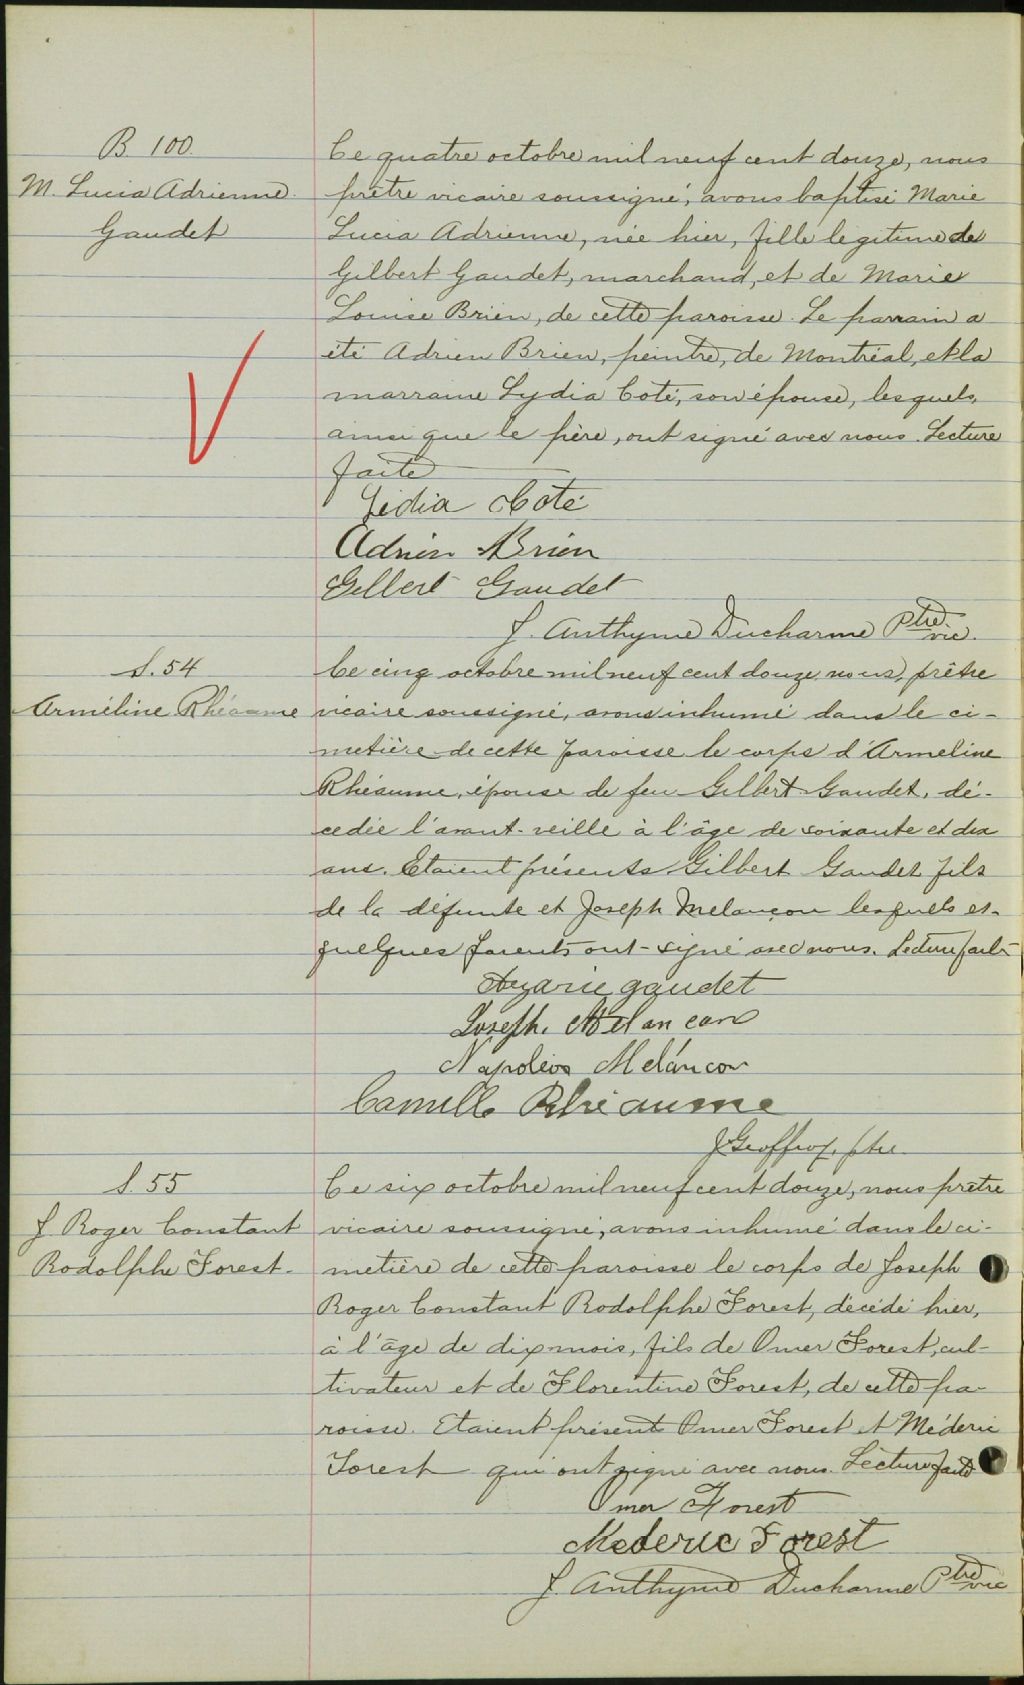 B. 100.
M. Lucia Adrienne
Gaudet
Ce quatre octobre mil neuf cent douze, nous
prêtre vicaire soussigné, avons baptisé Marie
Lucia Adrienne, née hier, fille légitime de
Gilbert Gaudet, marchand, et de Marie
Louise Brien, de cette paroisse. Le parrain a
été Adrien Brien, peintre, de Montréal, et la
marraine Lydia Coté, son épouse, lesquels,
ainsi que le père, ont signé avec nous. Lecture
faite
Lidia Coté
Adrien Brien
Gilbert Gaudet
J. Anthyme Ducharme Ptre vic.
S. 54
Arméline Rhéaume
Ce cinq octobre mil neuf cent douze, nous, prêtre
vicaire soussigné, avons inhumé dans le ci-
metière de cette paroisse le corps d'Armeline
Rhéaume, épouse de feu Gilbert Gaudet, dé-
cedée l'avant-veille à l'âge de soixante et dix
ans. Etaient présents Gilbert Gaudet fils
de la défunte et Joseph Melançon lesquels et
quelques parents ont signé avec nous. Lecture faite
Azarie gaudet
Joseph Melancon
Napoléon Melancon
Camille Rhéaume
J Geoffroy, ptre.
S. 55
J Roger Constant
Rodolphe Forest.
Ce six octobre mil neuf cent douze, nous prêtre
vicaire soussigné, avons inhumé dans le ci-
metière de cette paroisse le corps de Joseph
Roger Constant Rodolphe Forest, décédé hier,
à l'âge de dix mois, fils de Omer Forest, cul-
tivateur et de Florentine Forest, de cette pa-
roisse. Etaient présent Omer Forest et Méderic
Forest qui ont signé avec nous. Lecture faite
Omer Forest
Mederic Forest
J. Anthyme Ducharme Ptre vic